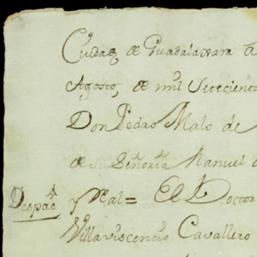 Ciudad de Guadalaxara a
Agosto, de mil Setecient
Don Pedro Malo de
de su Señoria Manuel d
Despacᵒ y Rˡ al = El Doctor
Villavisencio Cavallero